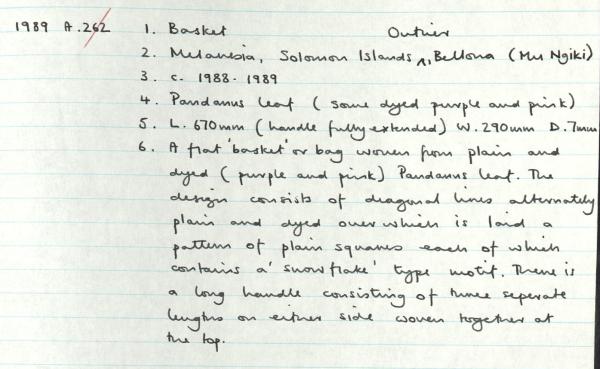 1989 A.262 1. Basket Outlier
2. Melanesia, Solomon Islands ^, Bellona (Mu Ngiki)
3. c. 1988-1989
4. Pandanus leaf (some dyed purple and pink)
5. L. 670mm (handle fully extended) W. 290mm D. 7mm
6. A flat 'basket' or bag woven from plain and
dyed (purple and pink) Pandanus leaf. The
design consists of diagonal lines alternately
plain and dyed over which is laid a
pattern of plain squares each of which
contains a 'snowflake' type motif. There is
a long handle consisting of three seperate
lengths on either side woven together at
the top.